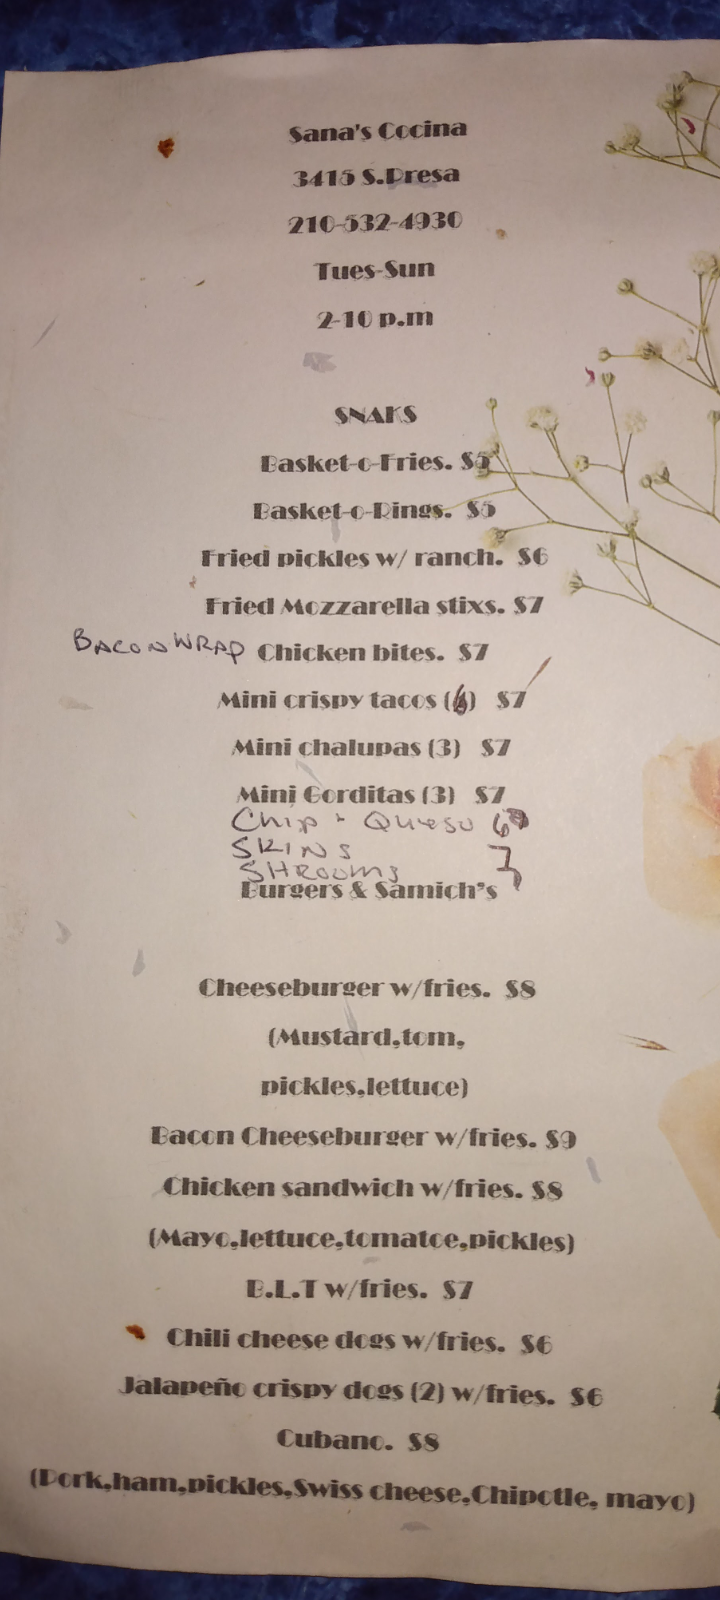 Sana's Cocina
3415 S.Presa
210-532-4930
Tues-Sun
2-10 p.m
SNAKS
Basket-o-Fries. $5
Basket-o-Rings. $5
Fried pickles w/ ranch. $6
Fried Mozzarella stixs. $7
BACON WRAP Chicken bites. $7
Mini crispy tacos (6) $7
Mini chalupas (3) $7
Mini Gorditas (3) $7
Chip + Queso 6
SKINS 7
SHROOMS
Burgers & Samich's
Cheeseburger w/fries. $8
(Mustard,tom,
pickles,lettuce)
Bacon Cheeseburger w/fries. $9
Chicken sandwich w/fries. $8
(Mayo,lettuce,tomatoe,pickles)
B.L.T w/fries. $7
Chili cheese dogs w/fries. $6
Jalapeño crispy dogs (2) w/fries. $6
Cubano. $8
(Pork,ham,pickles,Swiss cheese,Chipotle, mayo)